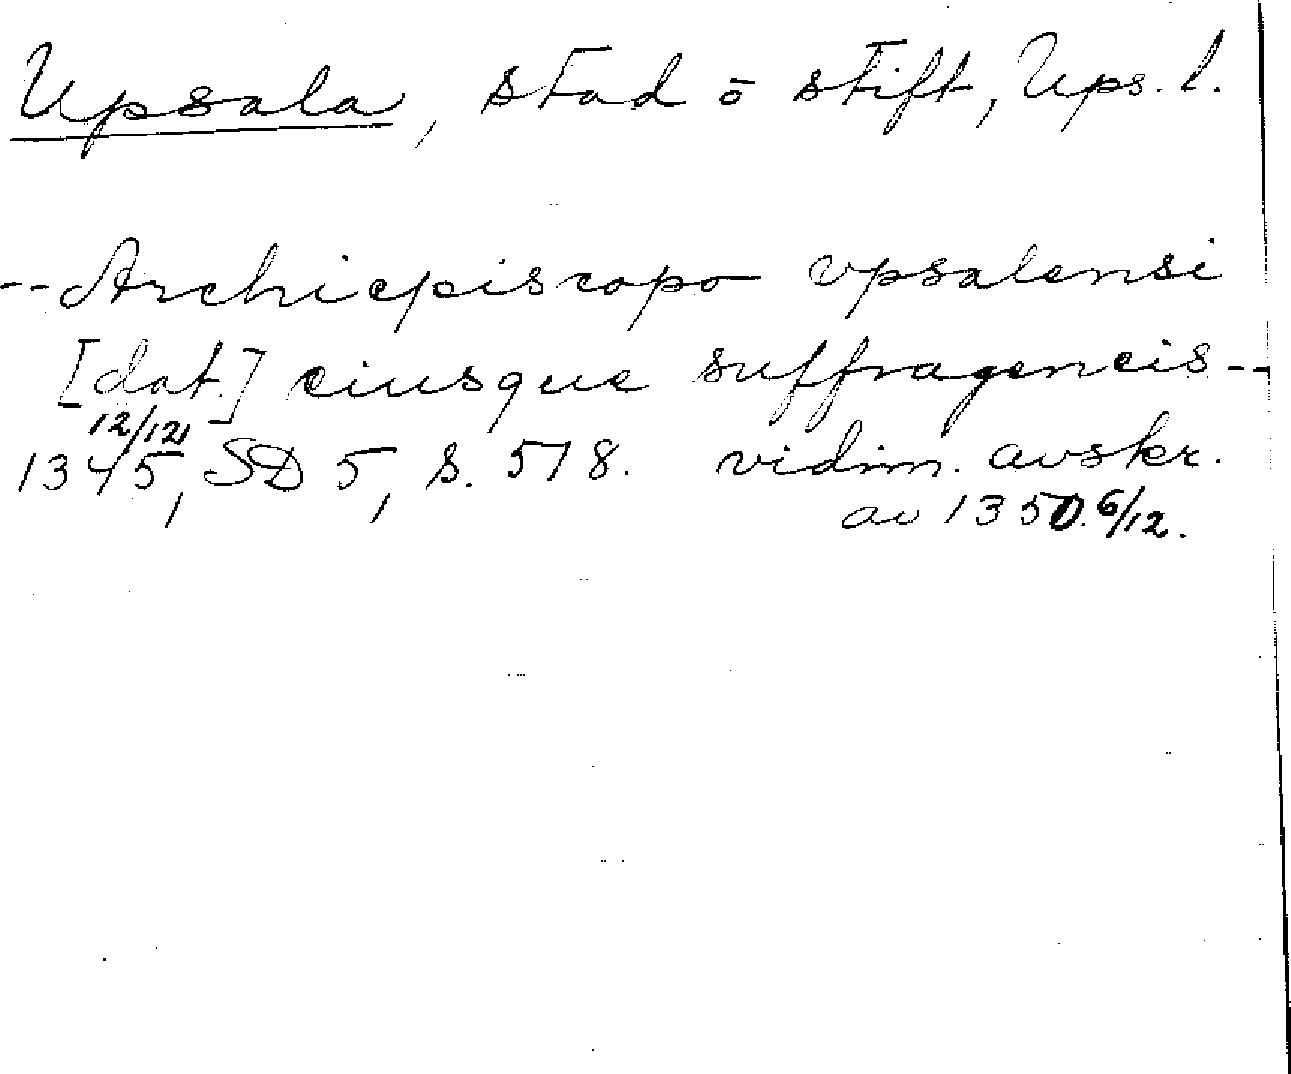 Upsala, stad o stift, Ups. l.
-- Archiepiscopo vpsalensi
[dat.] eiusque suffraganeis --
12/12
1345, SD 5, s. 518. vidim. avskr.
av 1350. 6/12.